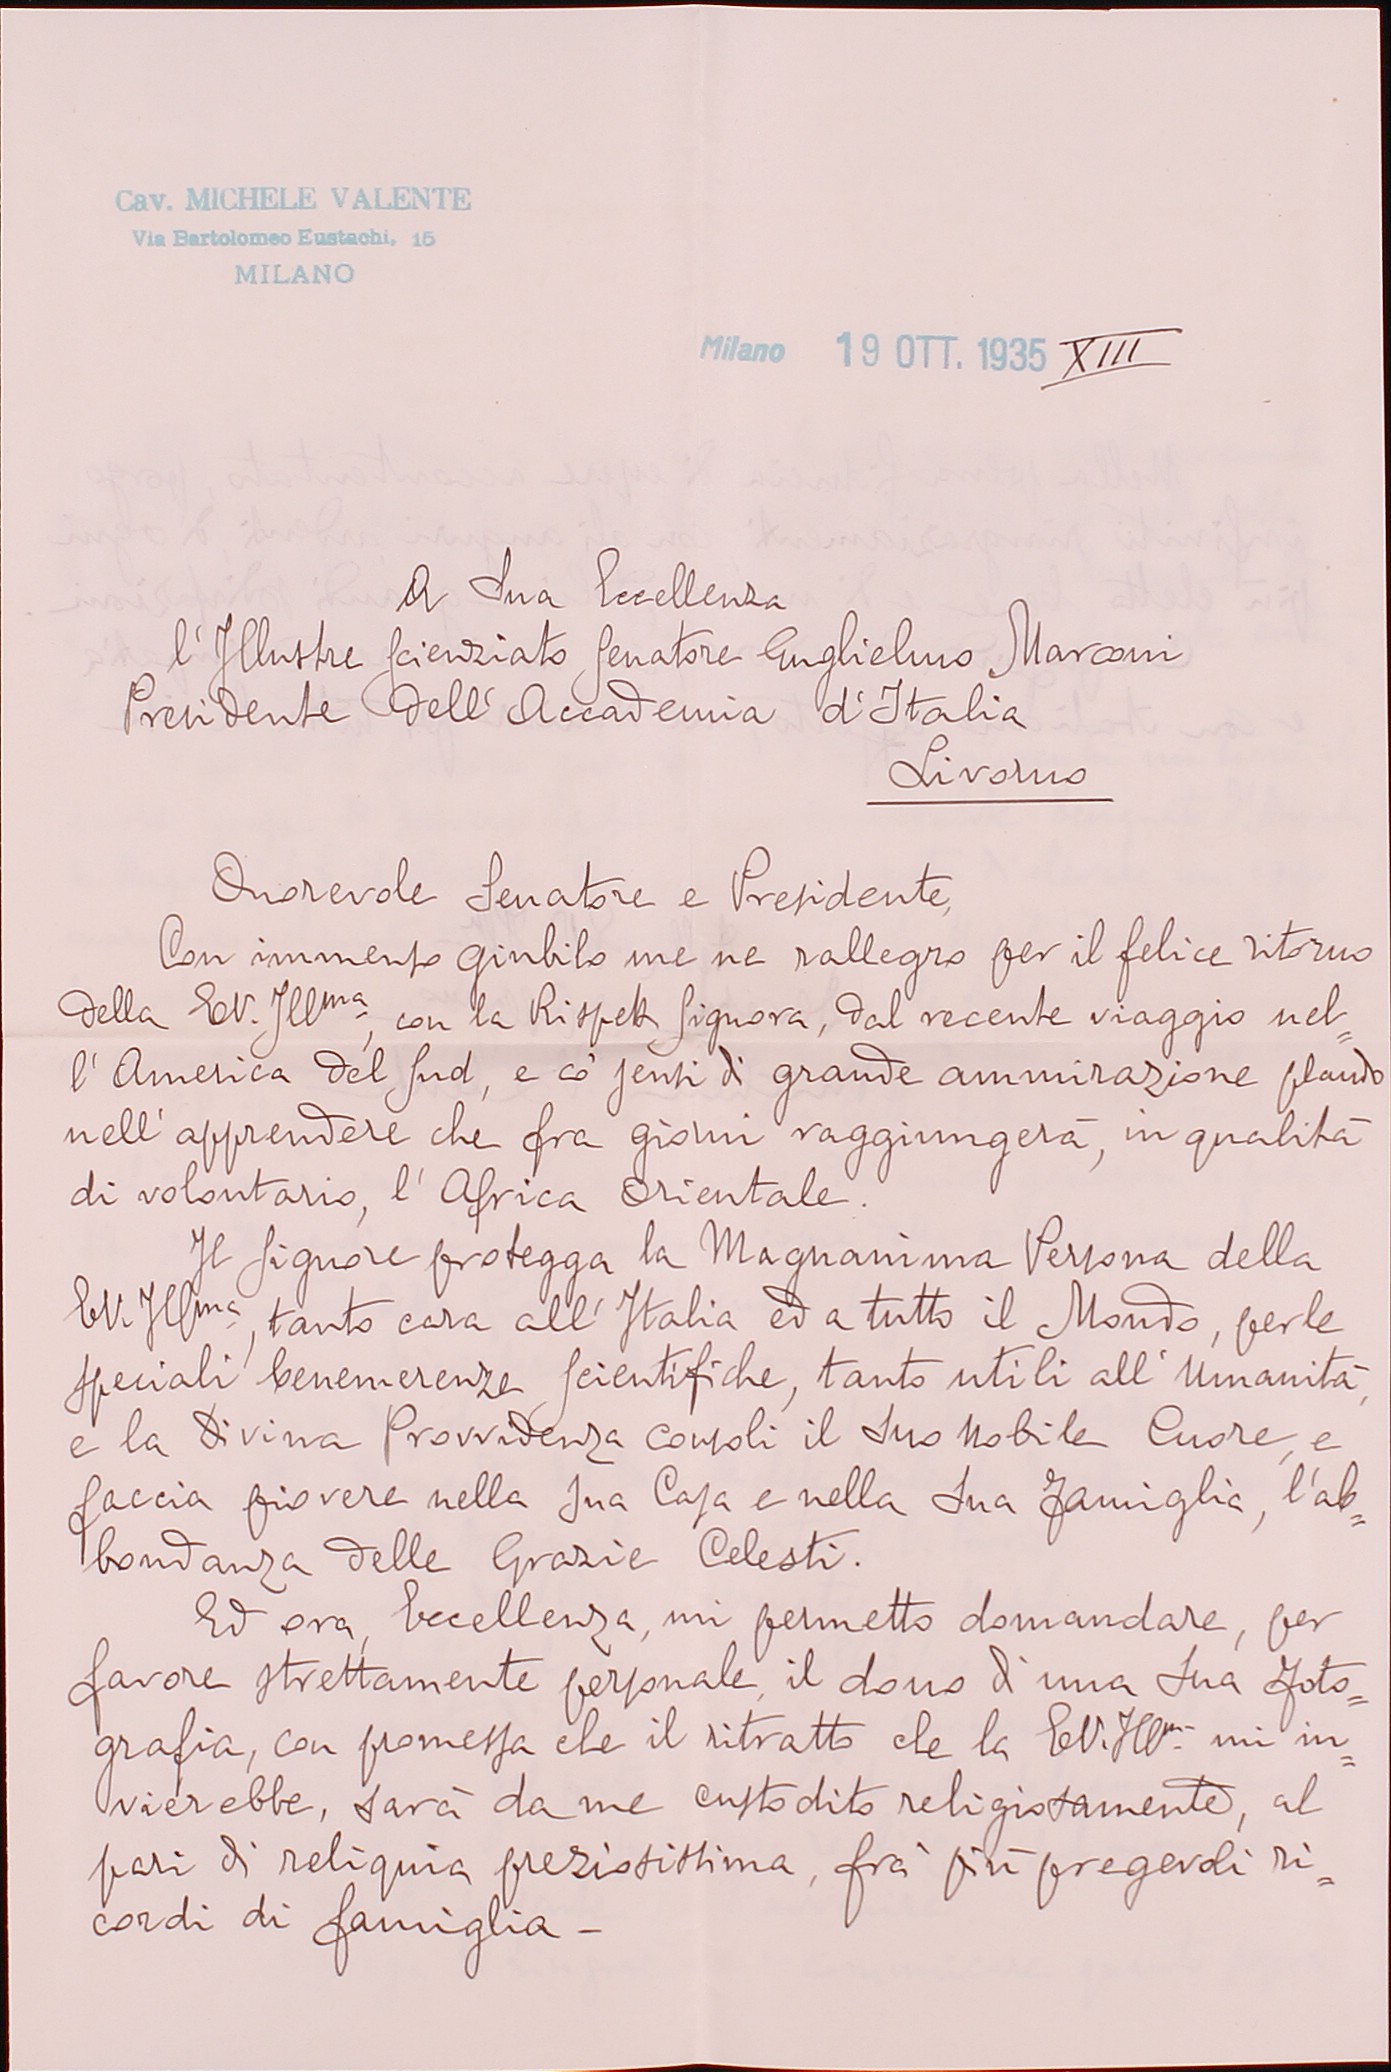 Cav. MICHELE VALENTE
Via Bartolomeo Eustachi, 15
MILANO
Milano 19 OTT. 1935 XIII
A Sua Eccellenza
l'Illustre Scienziato Senatore Guglielmo Marconi
Presidente dell'Accademia d'Italia
Livorno
Onorevole Senatore e Presidente,
Con immenso giubilo me ne rallegro per il felice ritorno
della E.V. Ill.ma, con la Rispett. Signora, dal recente viaggio nel=
l'America del Sud, e co' sensi di grande ammirazione plaudo
nell'apprendere che fra giorni raggiungerà, in qualità
di volontario, l'Africa Orientale.
Il Signore protegga la Magnanima Persona della
E.V. Ill.ma, tanto cara all'Italia ed a tutto il Mondo, per le
speciali benemerenze scientifiche, tanto utili all'Umanità,
e la Divina Provvidenza consoli il Suo Nobile Cuore, e
faccia piovere nella Sua Casa e nella Sua Famiglia, l'ab=
bondanza delle Grazie Celesti.
Ed ora, Eccellenza, mi permetto domandare, per
favore strettamente personale, il dono di una Sua foto=
grafia, con promessa che il ritratto che la E.V. Ill.ma mi in=
vierebbe, sarà da me custodito religiosamente, al
pari di reliquia preziosissima, fra' più pregevoli ri=
cordi di famiglia -